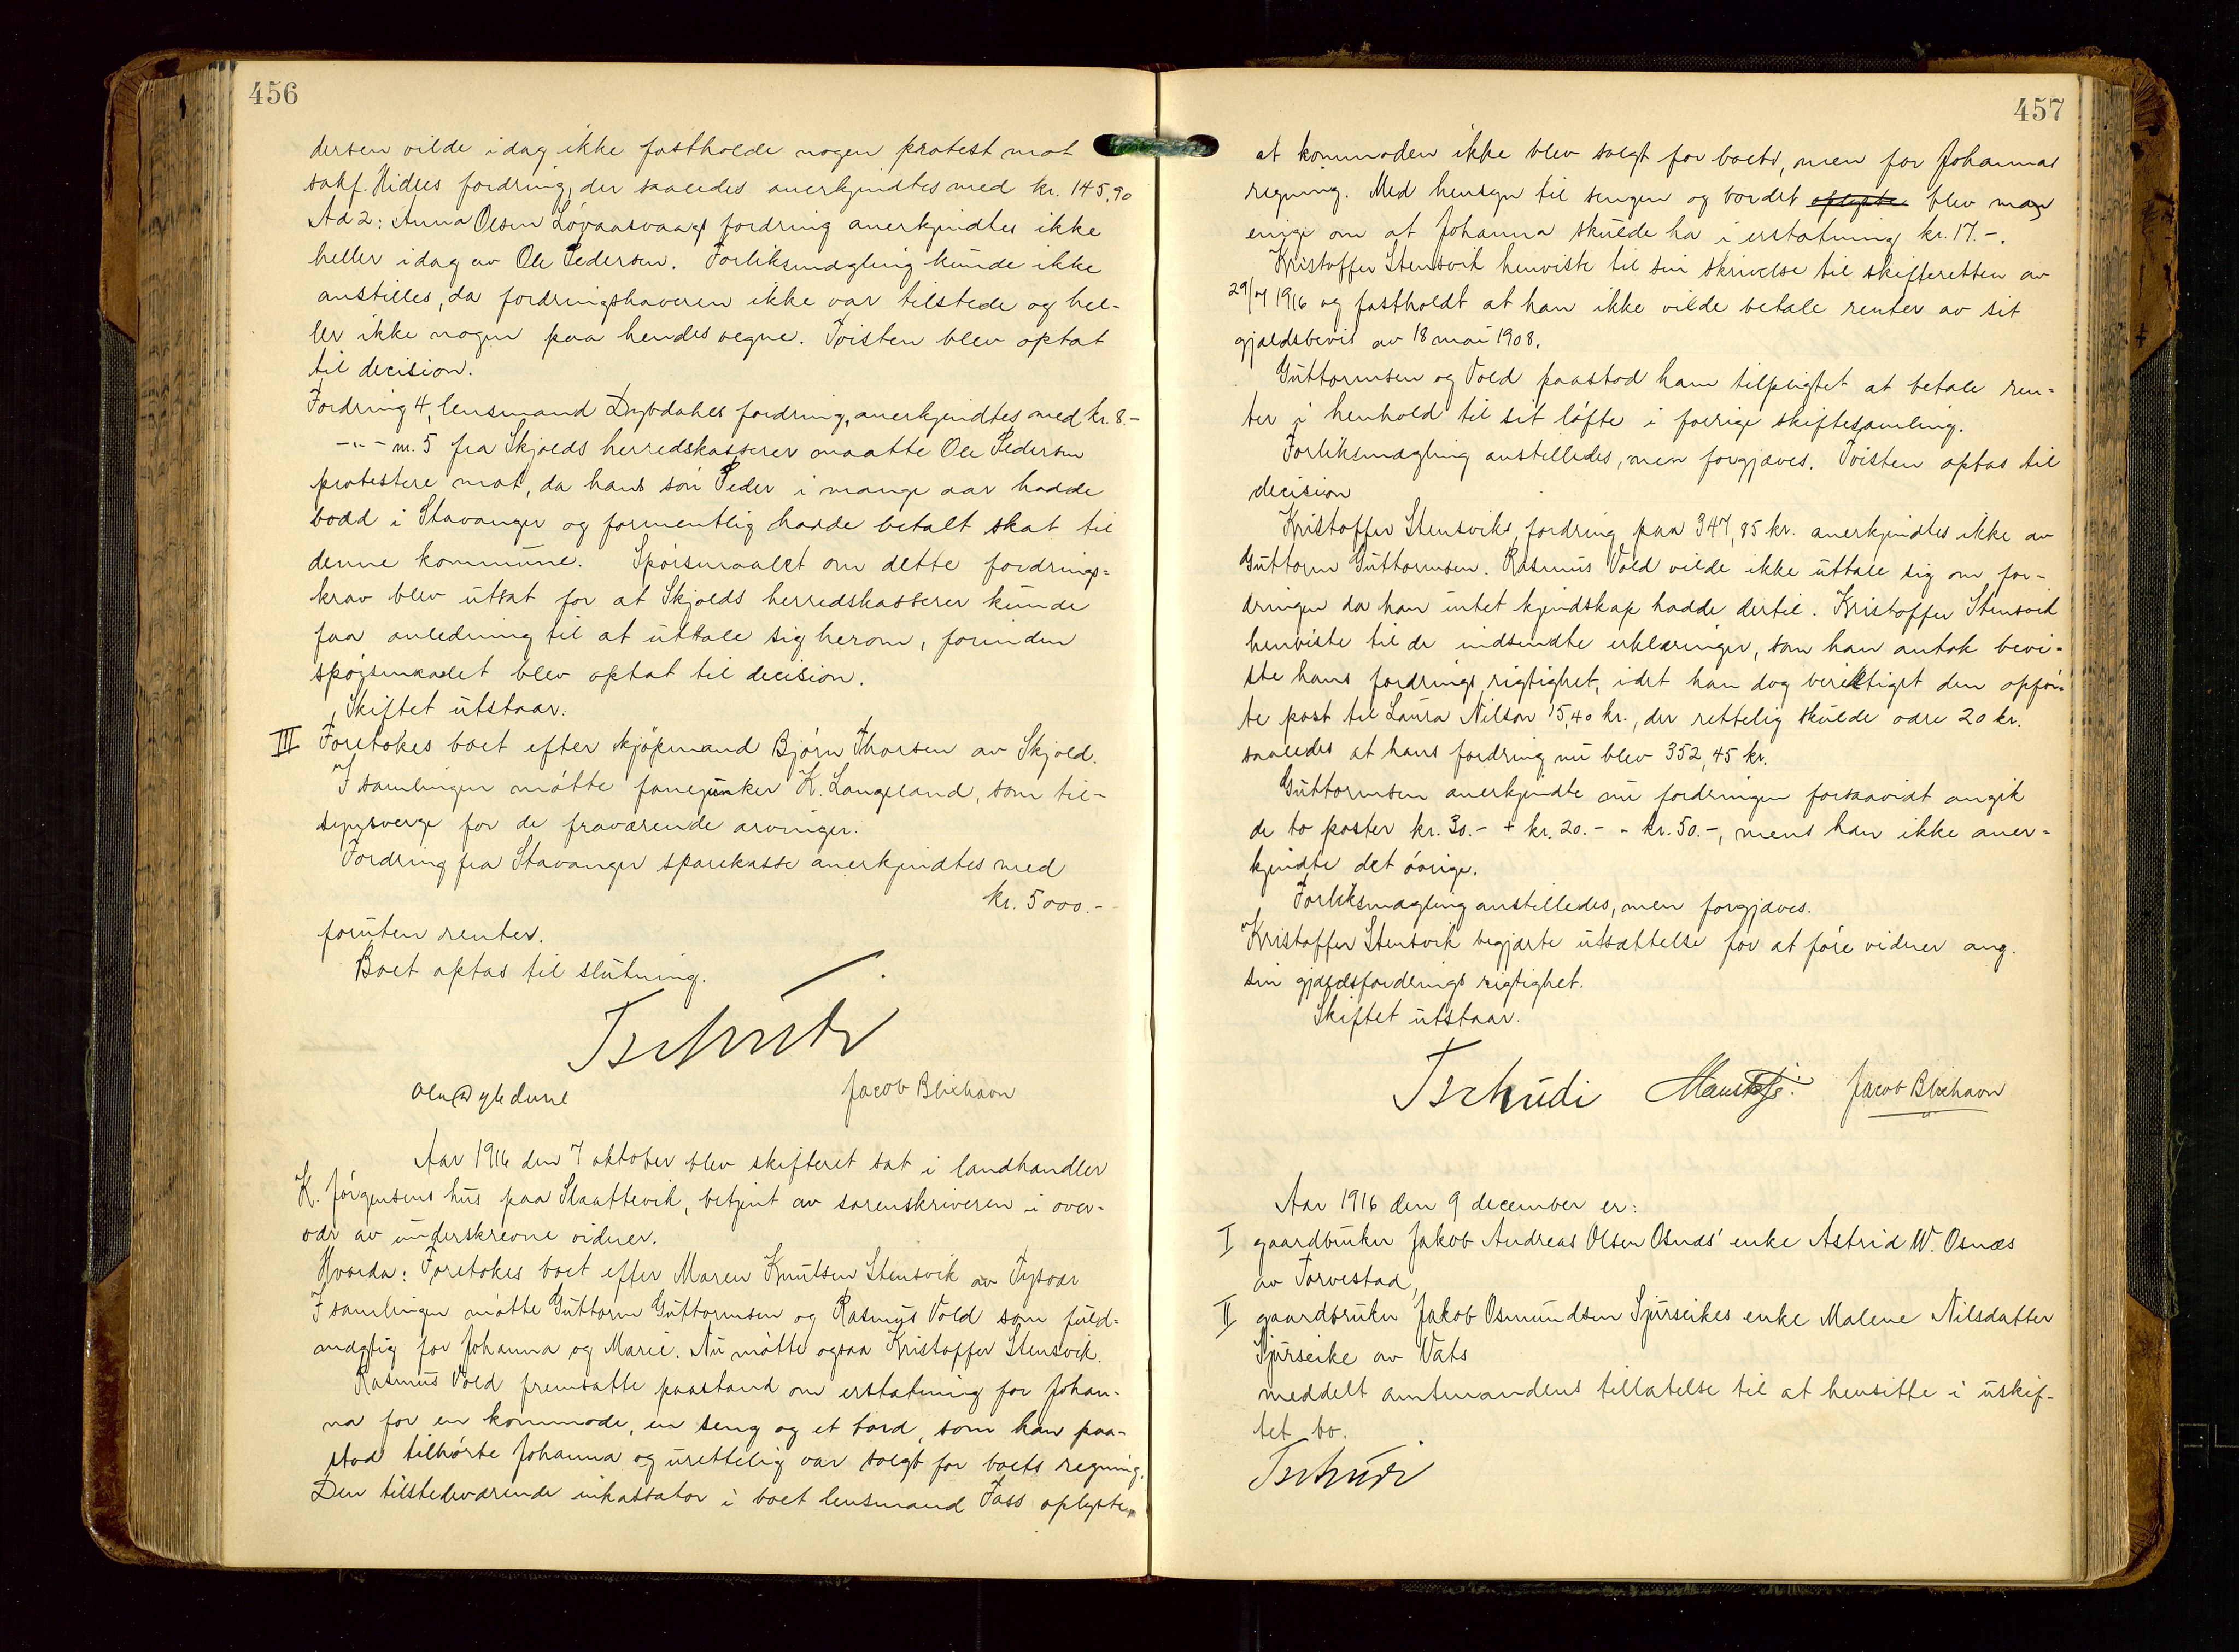 456
dersen vilde idag ikke fastholde nogen protest mot
sakf. Hidles fordring, der saaledes anerkjendtes med kr. 145,90
Ad 2: Anna Olsen Løvaasvaags fordring anerkjendtes ikke
heller idag av Ole Pedersen. Forliksmægling kunde ikke
anstilles, da fordringshaveren ikke var tilstede og hel-
ler ikke nogen paa hendes vegne. Tvisten blev optat
til decision.
Fordring 4, lensmand Dybdahls fordring, anerkjendtes med kr. 8.-
-"- nr. 5 fra Skjolds herredskasserer maatte Ole Pedersen
protestere mot, da hans søn Peder i mange aar hadde
bodd i Stavanger og formentlig hadde betalt skat til
denne kommune. Spørsmaalet om dette fordrings-
krav blev utsat for at Skjolds herredskasserer kunde
faa anledning til at uttale sig herom, forinden
spørsmaalet blev optat til decision.
Skiftet utstaar.
III Foretokes boet efter kjøpmand Bjørn Thorsen av Skjold.
I samlingen møtte fanejunker K. Langeland, som til-
synsverge for de fraværende arvinger.
Fordring fra Stavanger sparekasse anerkjendtes med
kr. 5000.-
foruten renter.
Boet optas til slutning.
Tschudi
Jacob Blixhavn
Aar 1916 den 7 oktober blev skifteret sat i landhandler
K. Jørgensens hus paa Slaattevik, betjent av sorenskriveren i over-
vær av underskrevne vidner.
Hvorda: Foretokes boet efter Maren Knutsen Stensvik av Tysvær
I samlingen møtte Guttorm Guttormsen og Rasmus Vold som fuld-
mægtig for Johanna og Marie. Nu møtte ogsaa Kristoffer Stensvik.
Rasmus Vold fremsatte paastand om erstatning for Johan-
na for en kommode, en seng og et bord, som han paa-
stod tilhørte Johanna og urettelig var solgt for boets regning.
Den tilstedeværende inkassator i boet lensmand Fass oplyste
457
at kommoden ikke blev solgt for boets, men for Johannas
regning. Med hensyn til sengen og bordet oplyste blev man
enige om at Johanna skulde ha i erstatning kr. 17.-.
Kristoffer Stensvik henviste til sin skrivelse til skifteretten av
29/7 1916 og fastholdt at han ikke vilde betale renter av sit
gjældsbevis av 18 mai 1908.
Guttormsen og Vold paastod ham tilpligtet at betale ren-
ter i henhold til sit løfte i forrige skiftesamling.
Forliksmægling anstilledes, men forgjæves. Tvisten optas til
decision
Kristoffer Stensviks fordring paa 347,85 kr. anerkjendtes ikke av
Guttorm Guttormsen. Rasmus Vold vilde ikke uttale sig om for-
dringen da han intet kjendskap hadde dertil. Kristoffer Stensvik
henviste til de indsendte erklæringer, som han antok bevi-
ste hans fordrings rigtighet, idet han dog beriktiget den opfør-
te post til Laura Nilson 15,40 kr., der rettelig skulde være 20 kr.
saaledes at hans fordring nu blev 352,45 kr.
Guttormsen anerkjendte nu fordringen forsaavidt angik
de to poster kr. 30.- + kr. 20.- - kr. 50.-, mens han ikke aner-
kjendte det øvrige.
Forliksmægling anstilledes, men forgjæves.
Kristoffer Stensvik begjærte utsættelse for at føre vidner ang.
sin gjældsfordrings rigtighet.
Skiftet utstaar.
Tschudi Jacob Blixhavn
Aar 1916 den 9 december er:
I gaardbruker Jakob Andreas Olsen Osnæs' enke Astrid W. Osnæs
av Torvestad,
II gaardbruker Jakob Osmundsen Sjurseikes enke Malene Nilsdatter
Sjurseike av Vats
meddelt amtmandens tillatelse til at hensitte i uskif-
tet bo.
Tschudi